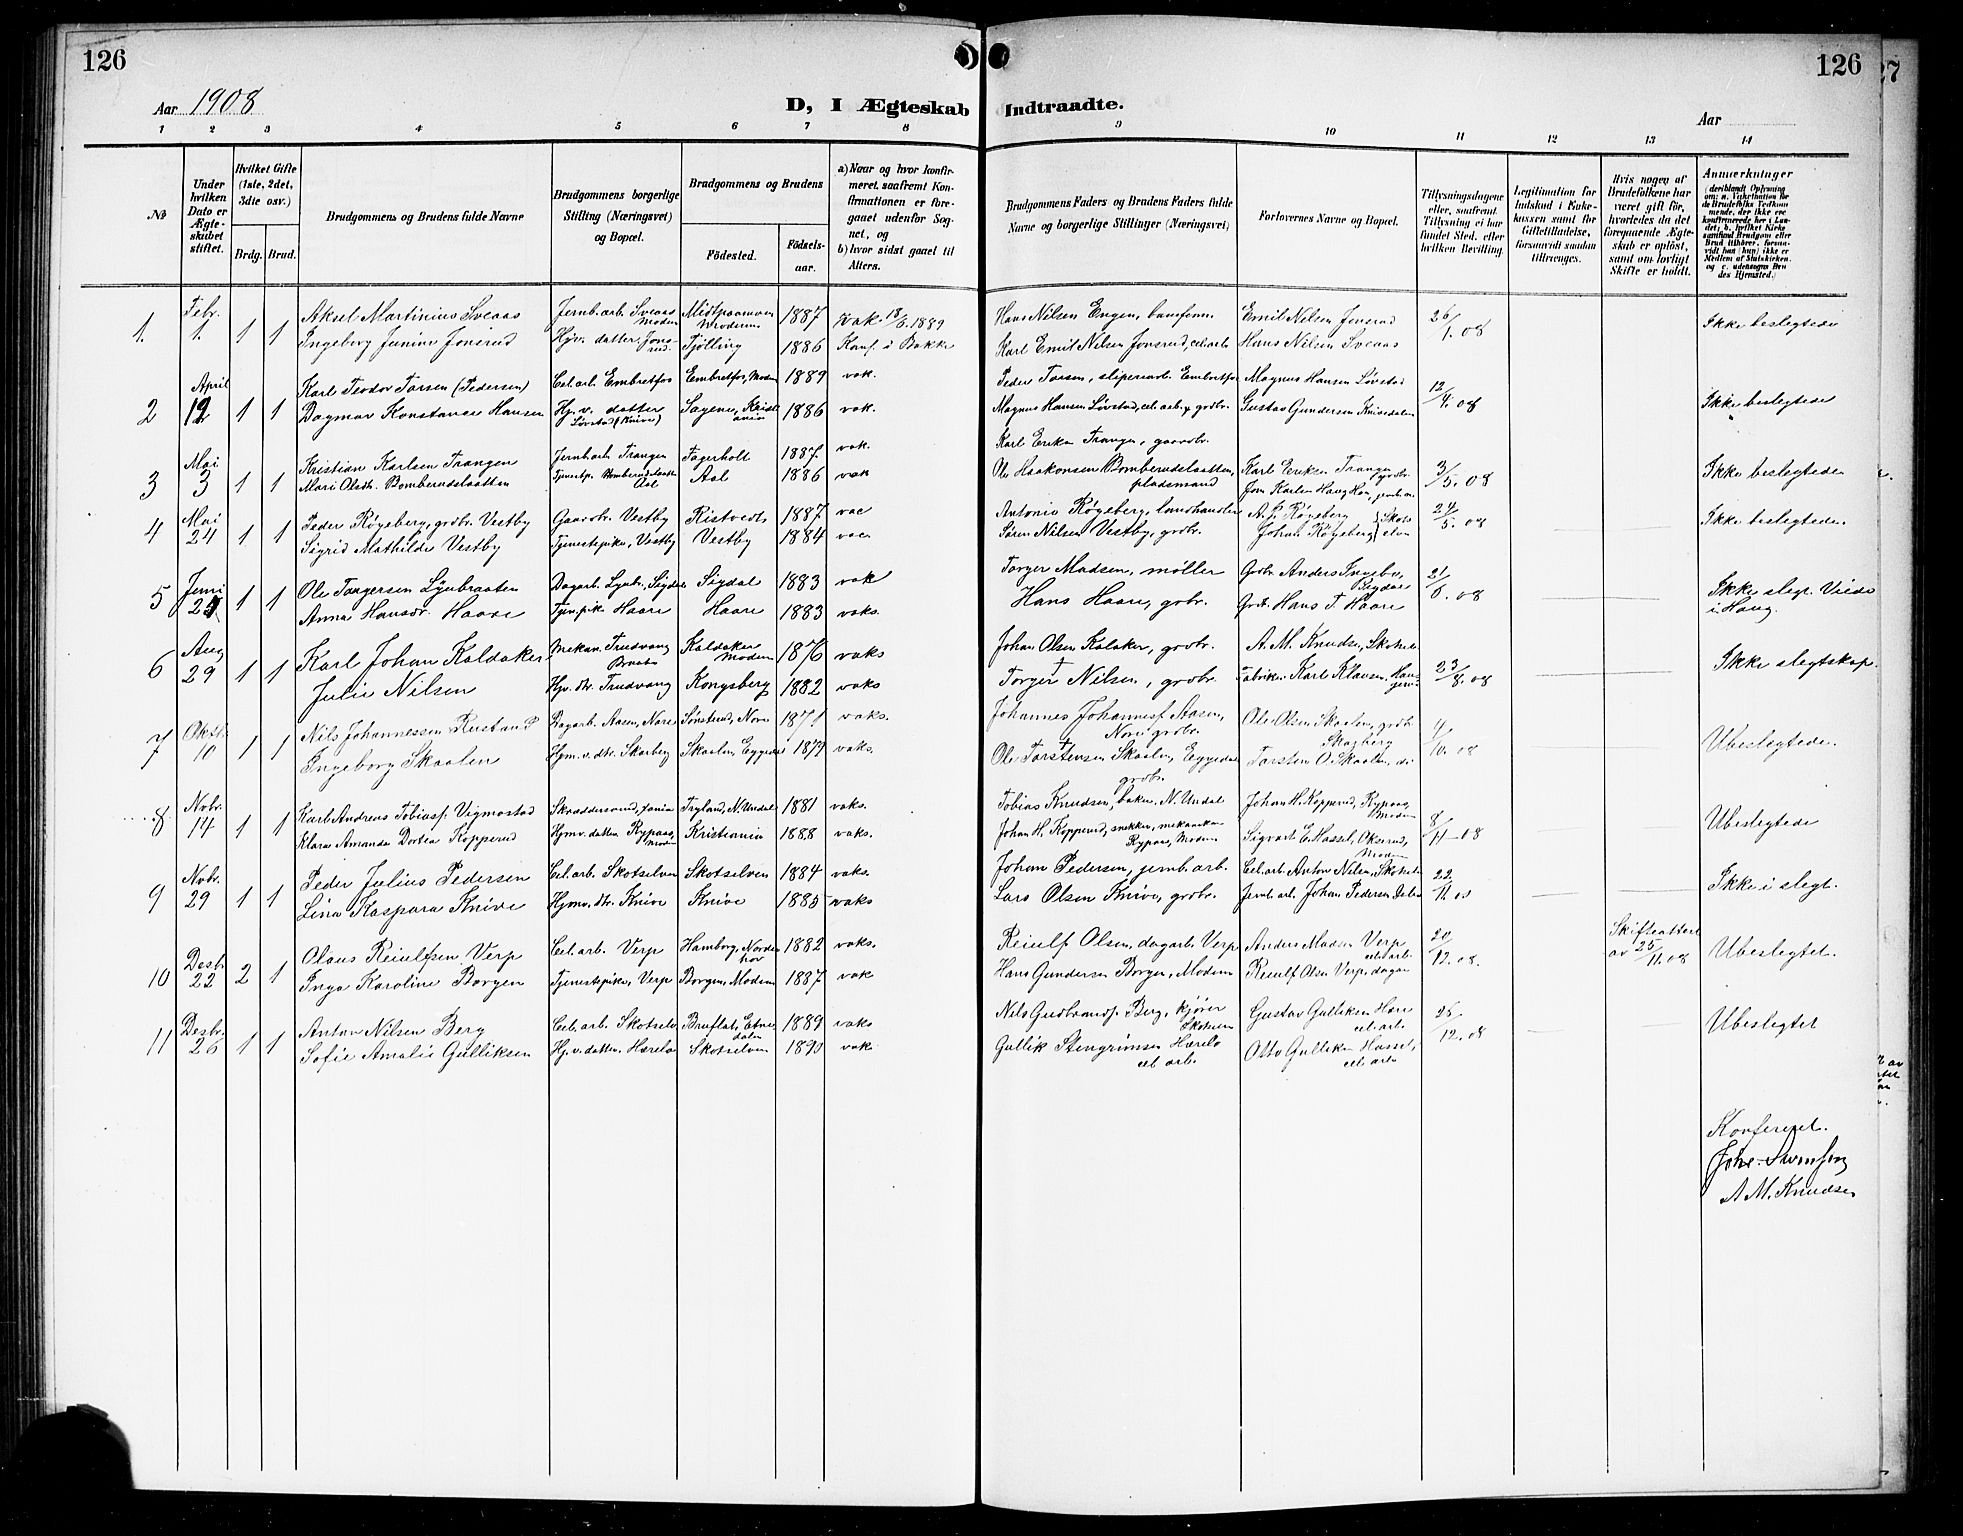 126
126
Aar 1908
D, I Ægteskab Indtraadte.
Aar
1 2 3 4 5 6 7 8 9 10 11 12 13 14
No
Under hvilken Dato er Ægteskabet stiftet.
Hvilket Gifte (1ste, 2det, 3die osv.)
Brdg. Brud.
Brudgommens og Brudens fulde Navne
Brudgommens borgerlige Stilling (Næringsvei) og Bopæl.
Brudgommens og Brudens
Fødested.
Fødselsaar.
a) Naar og hvor konfirmeret, saafremt Konfirmationen er foregaaet udenfor Sognet, og
b) hvor sidst gaaet til Alters.
Brudgommens Faders og Brudens Faders fulde Navne og borgerlige Stillinger (Næringsvei)
Forlovernes Navne og Bopæl.
Tillysningsdagene eller, saafremt Tillysning ei har fundet Sted, efter hvilken Bevilling.
Legitimation for Indskud i Enkekassen samt for Giftetilladelse, forsaavidt saadan tiltrænges.
Hvis nogen af Brudefolkene har været gift før, hvorledes da det foregaaende Ægteskab er opløst, samt om lovligt Skifte er holdt.
Anmerkninger
1. Febr. 1. 1 1
Aksel Martinius Sveaas Jernb.arb. Sveaas Modum 1887 vak. Hans Nilsen Engen, Emil Nilsen Jonsrud 26/1. 08 Ikke beslegtede
Ingeborg Junine Jonsrud Hjv. datter Jonsrud Tjølling 1886 Konf. i Bakke Karl Emil Nilsen Jonsrud, cel.arb. Hans Nilsen Sveaas
2 April 12 1 1
Karl Teodor Torsen (Pedersen) Cel.arb. Embretfos Embretfos, Modum 1889 vak. Peder Torsen, sliperiarb. Embretfos Magnus Hansen Løvstad 12/4. 08 Ikke beslegtede
Dagmar Konstanse Hansen Hj. v. datter Løvstad (Knive) Sagene, Kristiania 1886 vak. Magnus Hansen Løvstad, cel.arb. grdbr. Gustav Gundersen
3 Mai 3 1 1
Kristian Karlsen Trangen Jernb.arb. Trangen Fagerholt 1887 vak. Karl Eriksen Trangen, gaardbr. Karl Eriksen Trangen grdbr. 3/5. 08 Ikke beslegtede
Mari Olsdtr. Bomberudslaatten Tjenestep. Aal 1886 vak Ole Haakonsen Bomberudslaatten, pladsmand
4 Mai 24 1 1
Peder Røgeberg, grdbr. Vestby Gaardbr. Vestby Ristvedt 1887 vac Antonio Røgeberg, landhandler A. P. Røgeberg 24/5. 08 Ikke beslegtede.
Sigrid Mathilde Vestby Tjenestepike, Vestby Vestby 1884 vac. Søren Nilsen Vestby, grdbr. Johan Røgeberg
5 Juni 1 1
Ole Torgersen Lynbraaten Dagarb. Lynbr. Sigdal Sigdal 1883 vak Torger Madsen, møller Grdbr. Anders 21/6. 08 Ikke slegt. Viede i Haug.
Anna Hansdr. Haare Tjen.pike Haare Haare 1883 vaks. Hans Haare, grbr. Grdbr. Hans T. Haare
6 Aug 29 1 1
Karl Johan Kaldaker Mekan. Trudvang Kaldaker Modum 1876 vaks Johan Olsen Kalaker, grdbr. A. M. Knudsen, 23/8. 08 Ikke slegtskap.
Julie Nilsen Hjv. dtr. Trudvang Kongsberg 1882 vaks Torger Nilsen, grdbr. Fabrikeier Karl Klavsen
7 Oktbr. 10 1 1
Nils Johannessen Rustand Dagarb. Aasen, Nore Sønstrud, Nore 1871 vaks. Johannes Johannesf. Aasen, Nore grdbr. Ole Olsen Skaalen, grdbr. Skagberg 4/10. 08 Ubeslegtede.
Ingeborg Skaalen Hjm. v. dtr. Skarberg Skaalen, Eggedal 1879 vaks. Ole Torstensen Skaalen, Eggedal grdbr. Torsten O. Skaalen, do
8 Nobr. 14 1 1
Karl Andreas Tobiasf. Vigmostad Skræddersvend, Tryland, N. Undal 1881 vaks. Tobias Knudsen, baker, N. Undal Johan H. Kopperud, Rypaas, Modum 8/11-08 Ubeslegtede
Klara Amanda Dortea Kopperud Hjmv. datter Rypaas, Modum Kristiania 1888 vaks. Johan H. Kopperud, snekker, Rypaas, Modum Sigvart E. Hassel, Modum
9 Nvbr. 29 1 1
Peder Julius Pedersen Cel.arb. Skotselven Skotselven 1884 vaks. Johan Pedersen, jernb.arb. Cel.arb. Anton Nilsen, Skotselv 22/11. 08 Ikke i slegt.
Lina Kaspara Knive Hjmv. dtr. Knive Knive 1885 vaks Lars Olsen Knive, grdbr. Jernb.arb. Johan Pedersen
10 Desbr. 22 2 1
Olaus Reiulfsen Verp Cel.arb. Verp Hamborg, Norderhov 1882 vaks. Reiulf Olsen, dagarb. Verp Anders Madsen Verp cel.arb. 20/12. 08. Skifteattest av 25/11. 08 Ubeslegtet.
Inga Karoline Borgen Tjenestepike, Verp Borgen, Modum 1887 vak Hans Gundersen Borgen, Modum Reiulf Olsen Verp, dagarb.
11 Desbr. 26 1 1
Anton Nilsen Berg Cel.arb. Skotselv Bruflat, Etnedalen 1889 vaks Nils Gudbrandsf. Berg, kjører Gustav Gulliksen cel.arb. 26/12. 08 Ubeslegtet
Sofie Amalie Gulliksen Hj. v. datter, Hærelo Skotselven 1890 vak Gullik Stengrimsen Hærelo cel.arb. Otto Gulliksen Hassel, cel.arb.
Konfereret.
A M. Knudsen